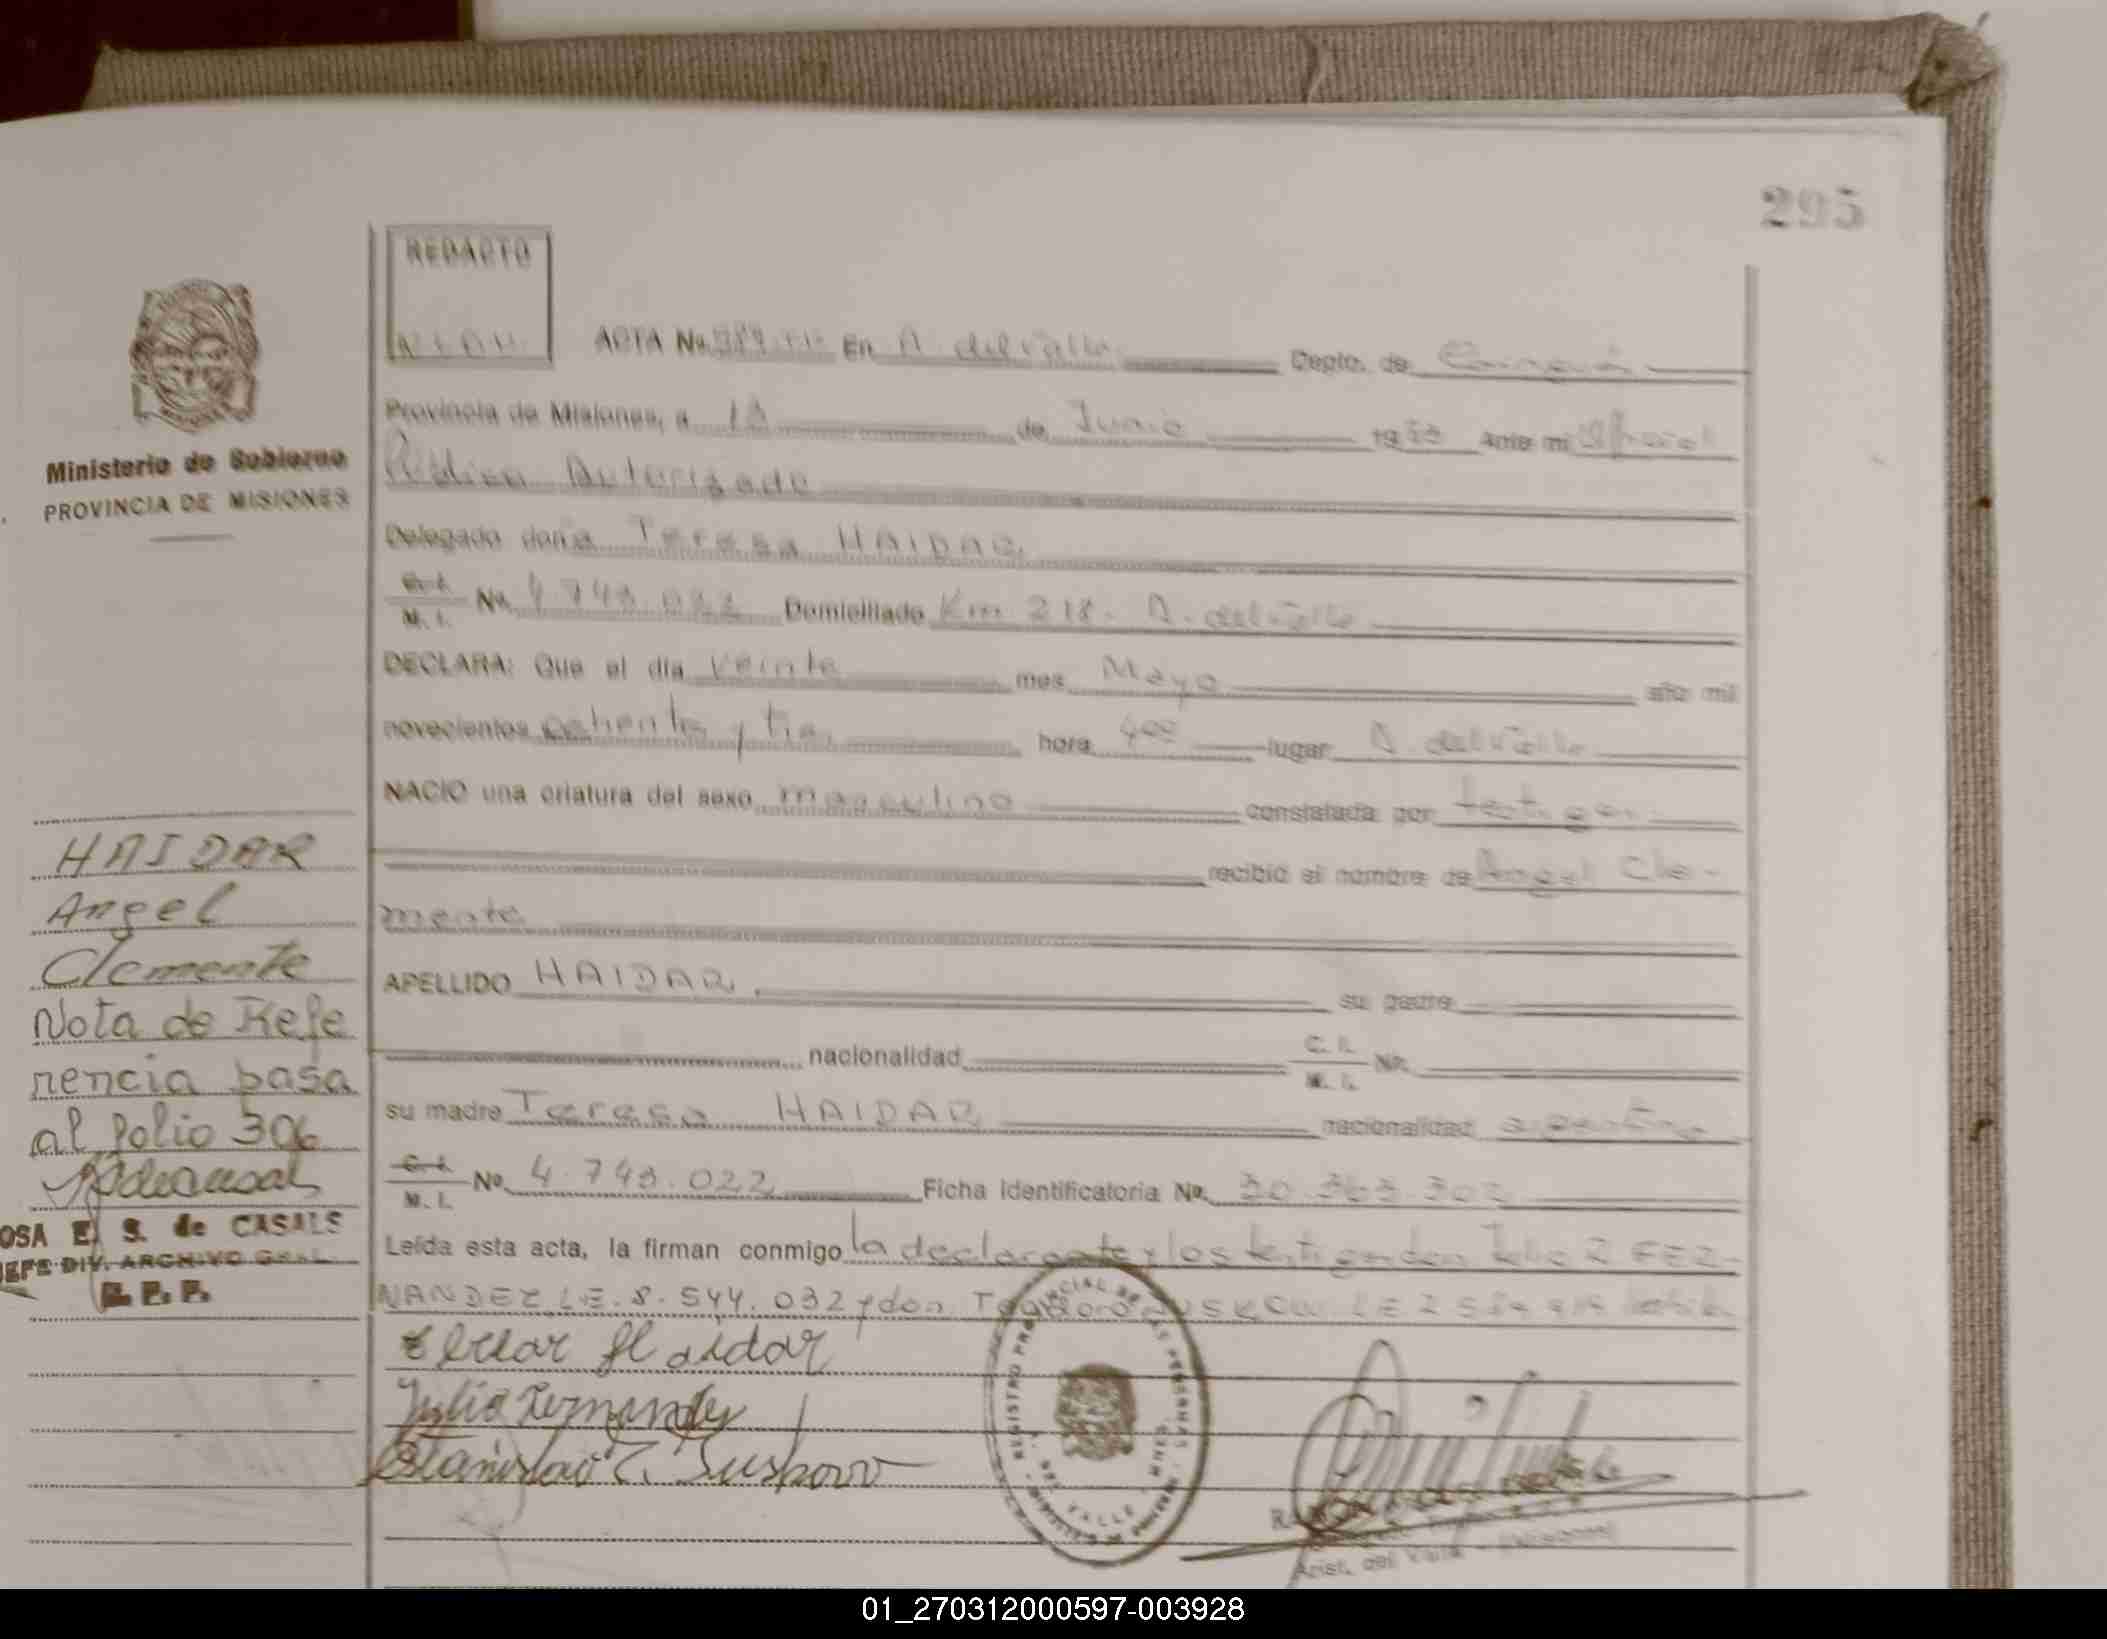 295
REDACTO
ACTA No. En A. del Valle Depto. de
Provincia de Misiones, a de Junio 19 Ante mi Oficial
Público Autorizado
Delegado doña Teresa HAIDAR
C. I. M. I. No. 4.743.022 Domiciliado Km 218. A. del Valle
DECLARA: Que el día veinte mes Mayo año mil
novecientos ochenta y tres hora 4°° lugar A. del Valle
NACIO una criatura del sexo masculino constatada por testigos
recibió el nombre de Angel Cle-
mente
APELLIDO HAIDAR su padre
nacionalidad C. I. M. I. No.
su madre Teresa HAIDAR nacionalidad argentina
C. I. M. I. No. 4.743.022 Ficha Identificatoria No. 30.363.302
Leída esta acta, la firman conmigo la declarante y los testigos don Julio FER-
NANDEZ L.E. 8.544.032 y don
Haidar
Julio Fernandez
Estanislao T.
Ministerio de Gobierno
PROVINCIA DE MISIONES
HAIDAR
Angel
Clemente
Nota de Refe
rencia pasa
al folio 306
ROSA E. S. de CASALS
JEFE DIV. ARCHIVO GRAL.
R. P. P.
REGISTRO PROVINCIAL DE LAS PERSONAS
Arist. del Valle - (Misiones)
01_270312000597-003928